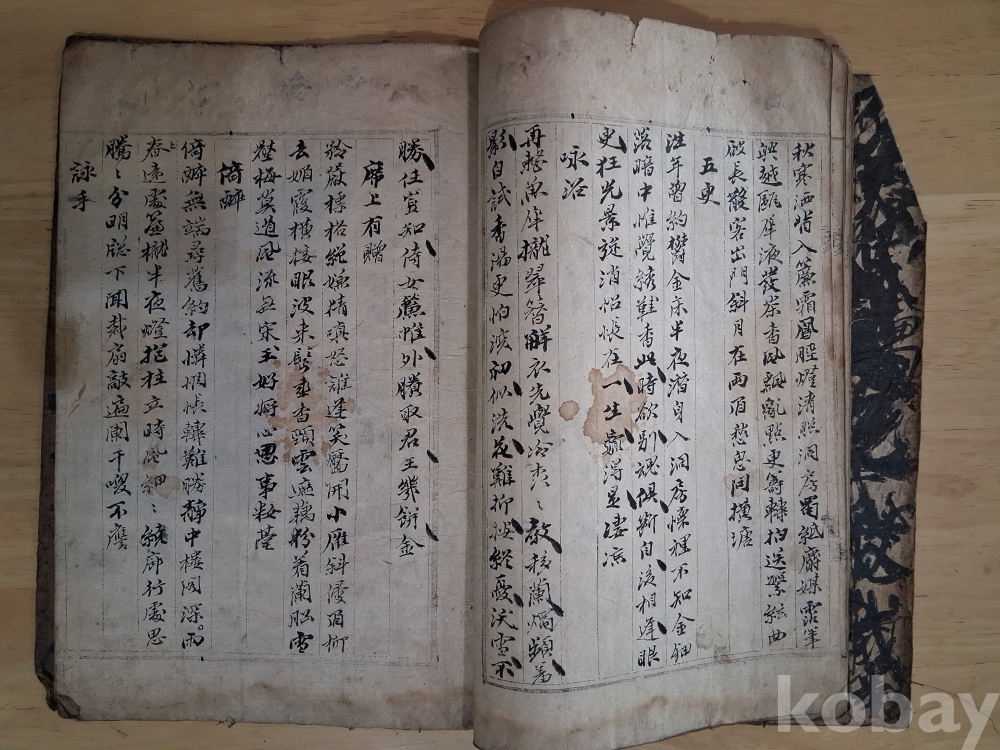 秋寒洒背入簾霜鳳脛燈清照洞房蜀紙麝媒霑筆
興越甌犀液發茶香風飄亂點更籌轉拍送繁絃曲
破長散客出門斜月在兩眉愁思問橫塘
五更
往年曾約鬱金床半夜潛身入洞房懷裡不知金鈿
落暗中惟覺綉鞋香此時欲別魂俱斷自後相逢眼
更狂光景旋消惆悵在一生贏得是凄凉
咏浴
再整魚犀攏翠簪解衣先覺冷森〻教移蘭燭頻羞
影自試香湯更怕深初似洗花難抑按終憂沃雪不
勝任豈知侍女簾帷外賸取君王幾餅金
席上有贈
矜嚴標格絕嫌猜嗔怒誰逢笑靨開小雁斜侵眉柳
去媚霞橫接眼波来鬢垂香頸雲遮藕粉着蘭胸雪
壓梅莫道風流無宋玉好將心思事粧臺
倚醉
倚醉無端尋舊約却憐惆悵轉難勝靜中樓閣深。雨
春上遠處簾櫳半夜燈抱柱立時風細〻繞廊行處思
騰〻分明聡下聞裁扇敲遍闌干喚不應
詠手
kobay